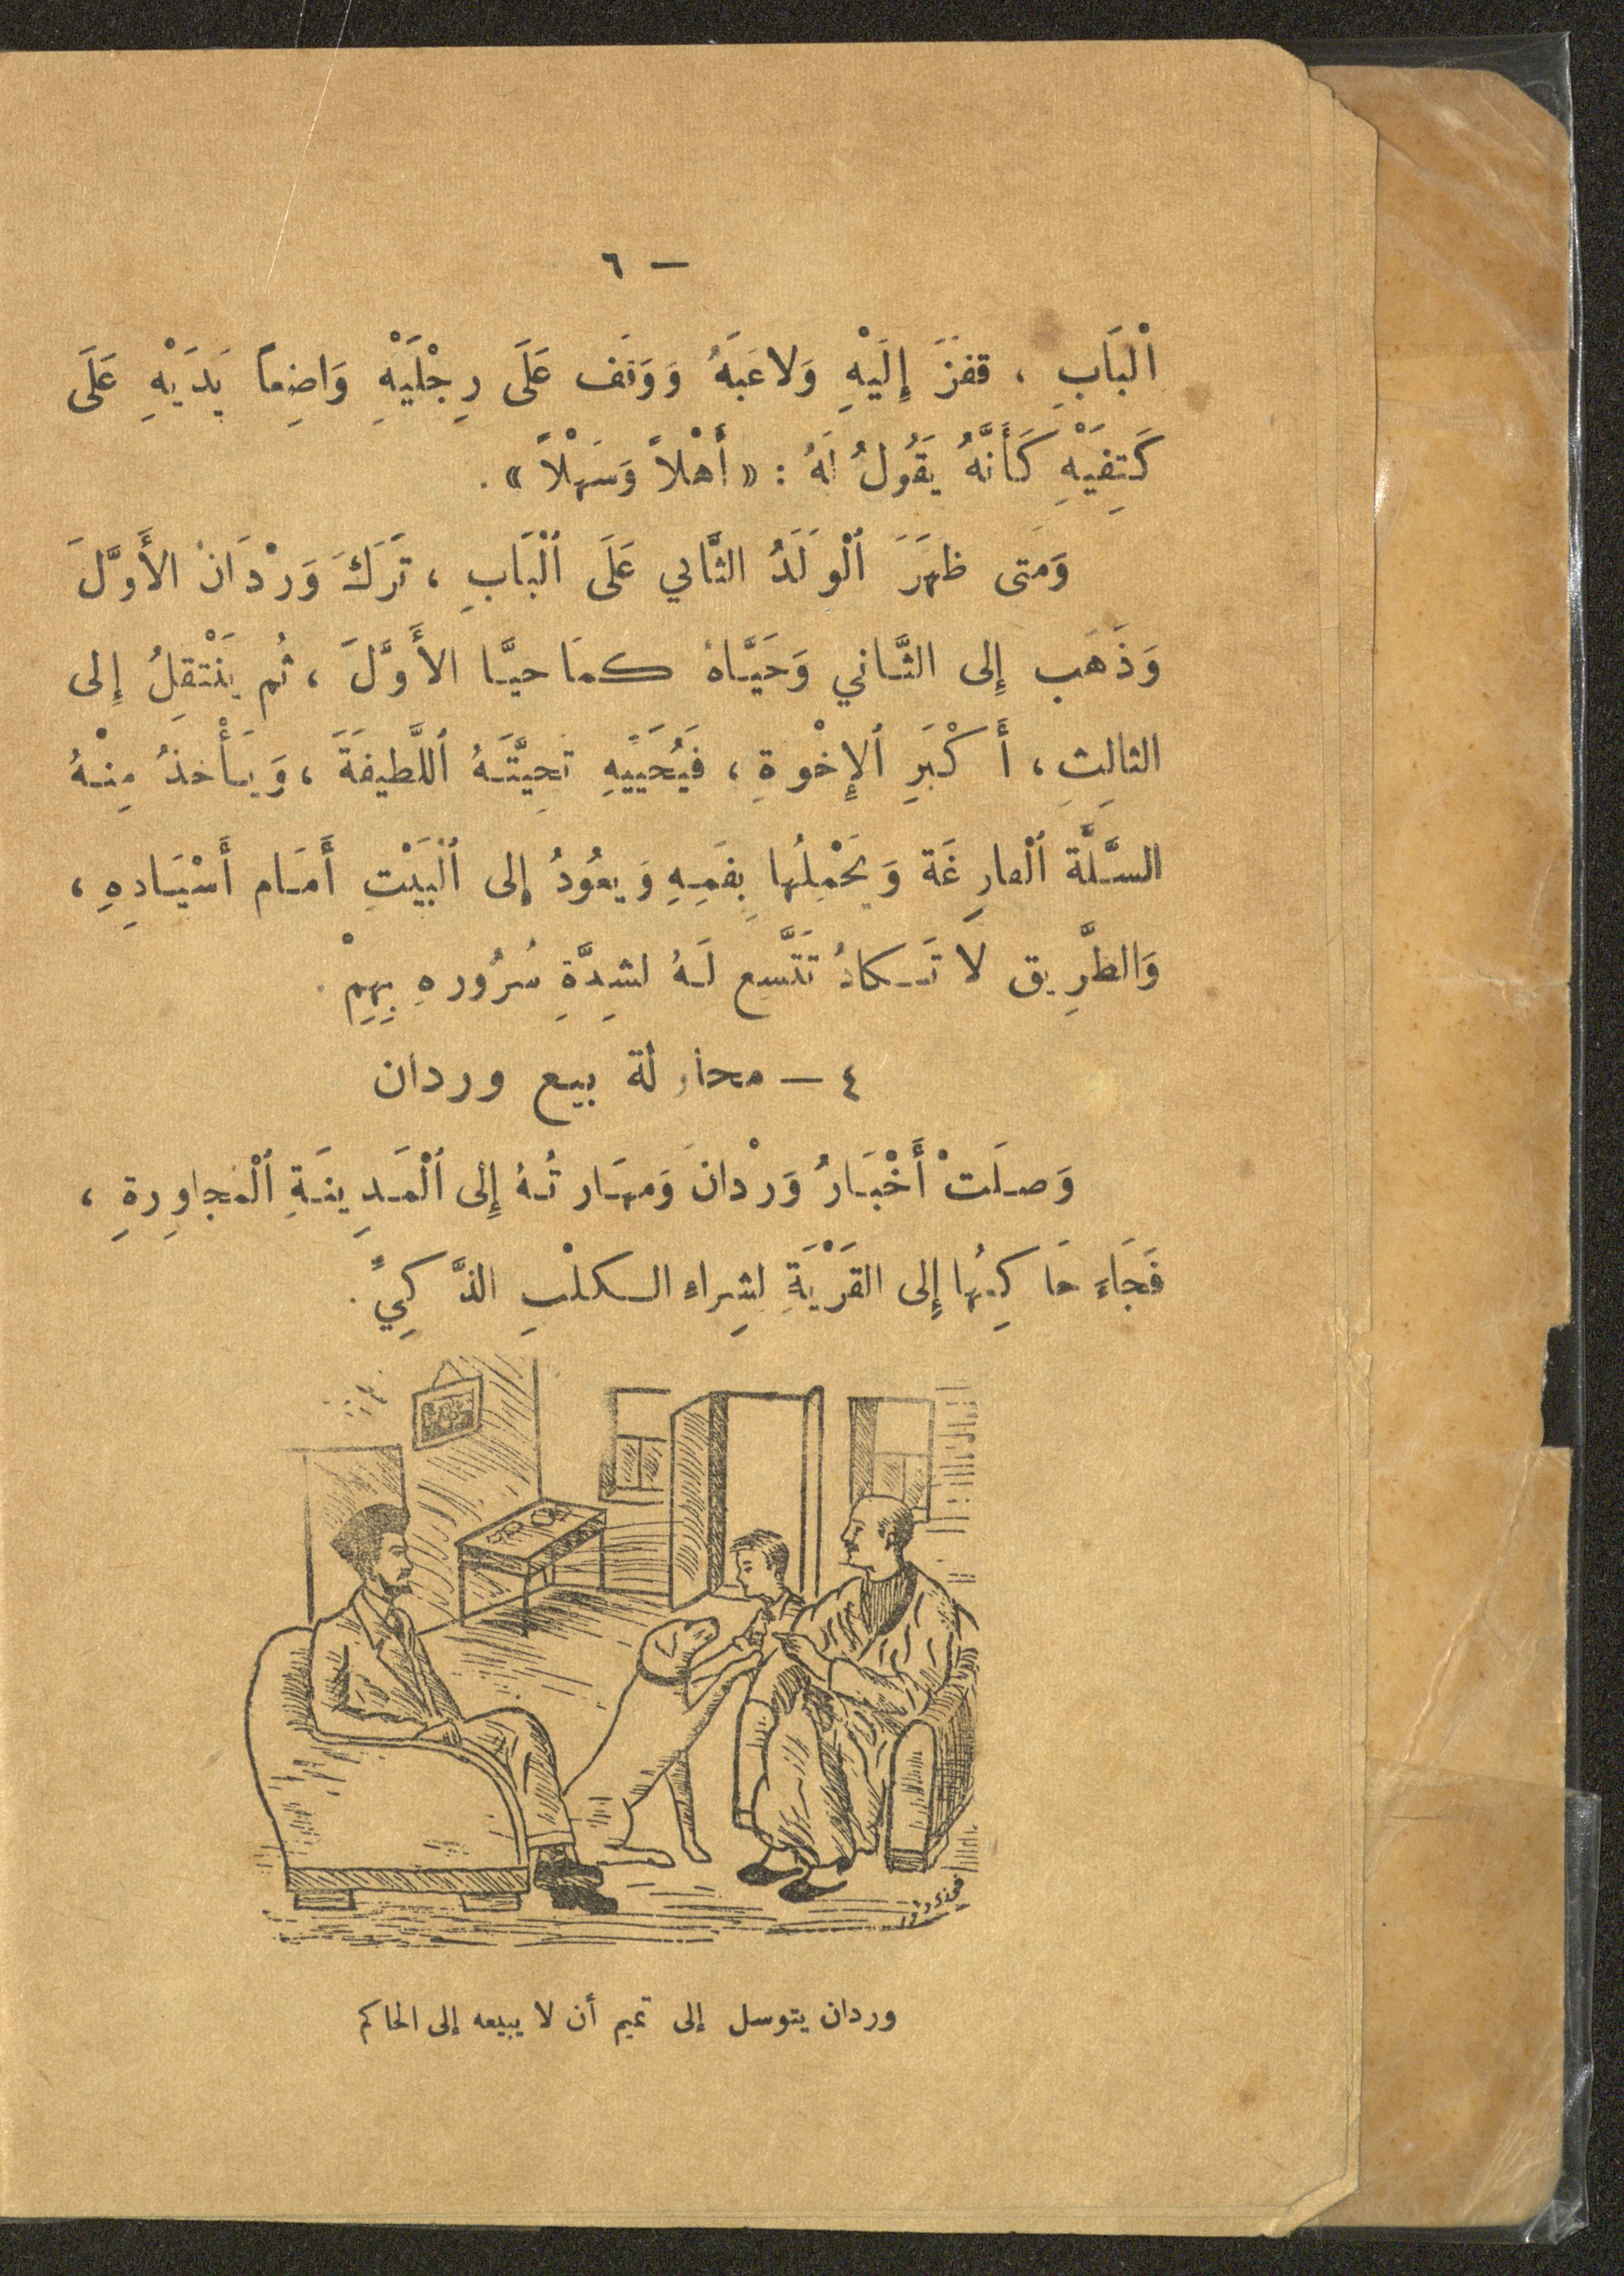 — ٦
ٱلْبَابِ ، قفزَ إِلَيْهِ وَلاعَبَهُ وَوَقَف عَلَى رِجْلَيْهِ وَاضِعاً يَدَيْهِ عَلَى
كَتِفَيْهِ كَأَنَّهُ يَقُولُ لَهُ : « أَهْلاً وَسَهْلاً » .
وَمَتى ظهَرَ ٱلْوَلَدُ الثَّاني عَلَى ٱلْبَابِ ، تَرَكَ وَرْدَانُ الأَوَّلَ
وَذَهَب إِلى الثَّاني وَحَيَّاهُ كمَا حيَّا الأَوَّلَ ، ثُم يَنْتقِلُ إِلى
الثالِثِ ، أَكْبَرِ ٱلإِخْوَةِ ، فَيُحَيِّيهِ تَحِيَّتَهُ ٱللَّطِيفَةَ ، وَيَأْخذُ مِنْهُ
السَّلَّة ٱلْفارِغَة وَيَحْمِلُها بِفَمِهِ وَيعُودُ إِلى ٱلْبَيْتِ أَمَام أَسْيَادِهِ ،
وَالطَّرِيق لا تَكادُ تَتَّسِع لَهُ لشِدَّةِ سُرُورهِ بِهِمْ .
٤ — محاولة بيع وردان
وَصلَتْ أَخْبَارُ وَرْدَانَ وَمهَارتُهُ إِلى ٱلْمَدِينَةِ ٱلْمُجاوِرةِ ،
فَجَاءَ حَاكِمُها إِلى القَرْيَةِ لشِراءِ الكلْبِ الذَّكِيِّ .
وردان يتوسل إلى تميم أن لا يبيعه إلى الحاكم